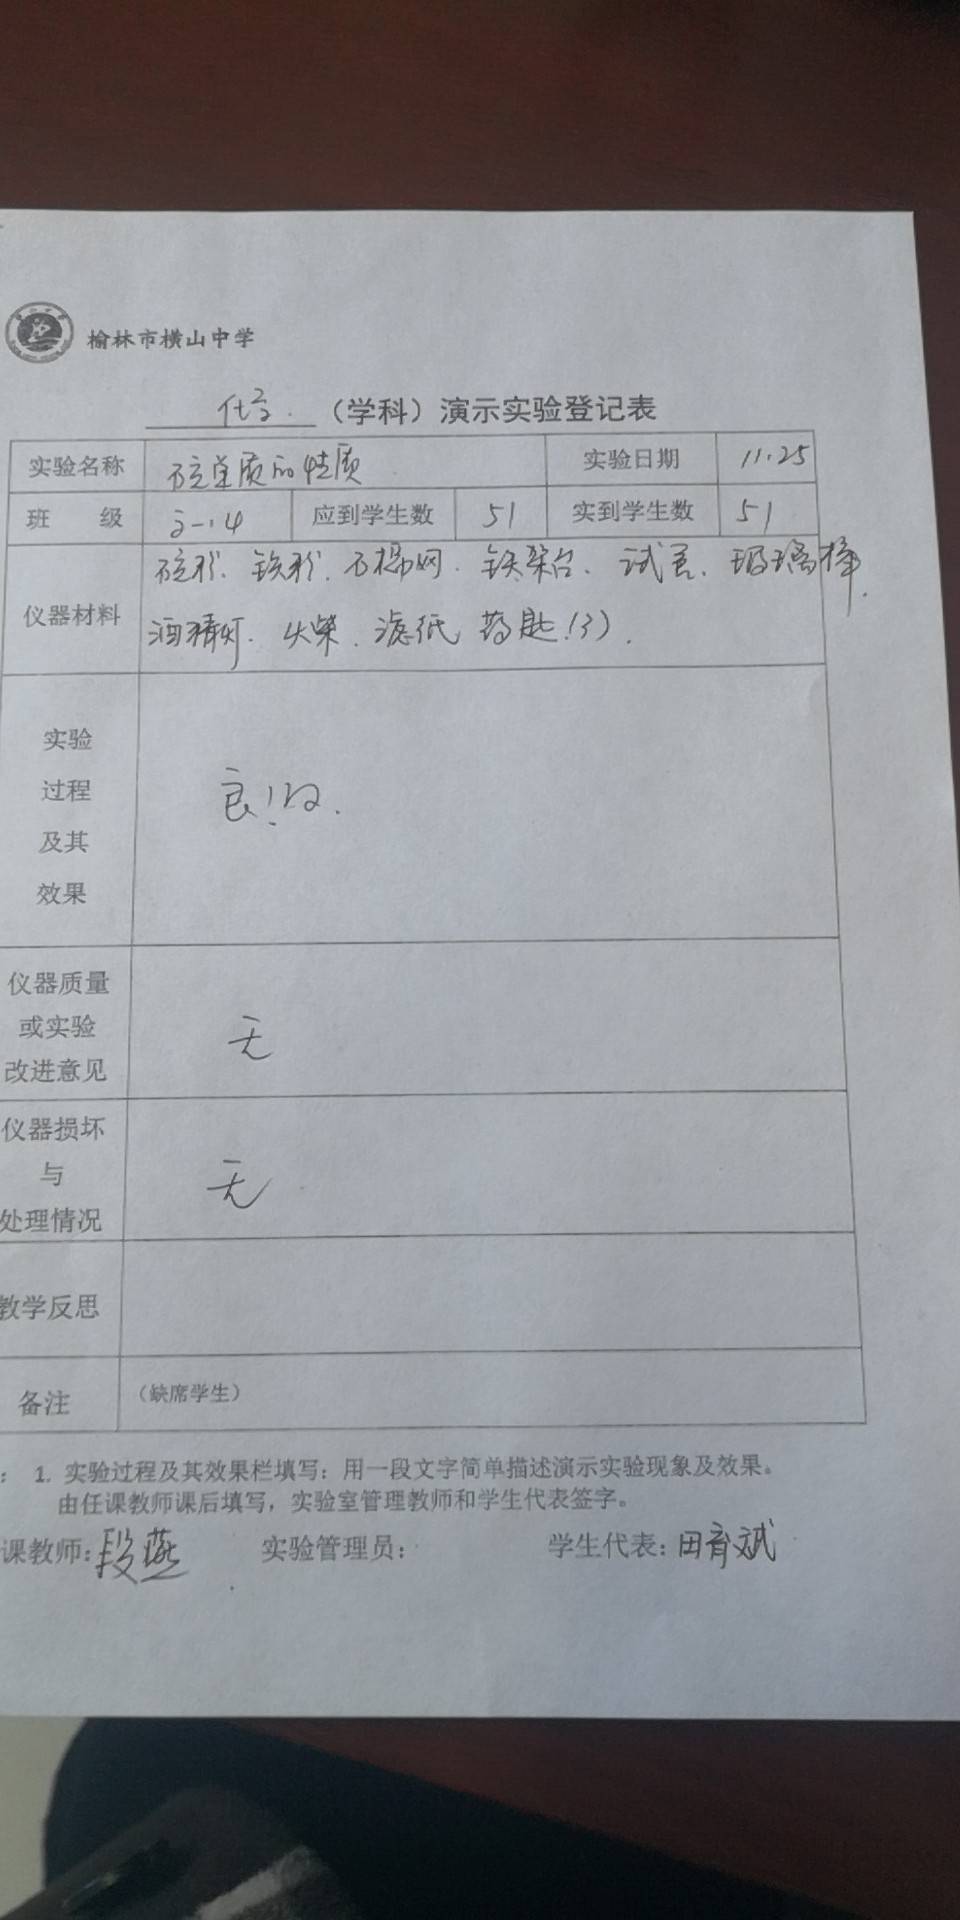 榆林市横山中学
化学 （学科）演示实验登记表
实验名称 硫单质的性质 实验日期 11.25
班 级 高一.14 应到学生数 51 实到学生数 51
仪器材料 硫粉、铁粉、石棉网、铁架台、试管、玻璃棒、
酒精灯、火柴、滤纸 药匙(3).
实验
过程
及其
效果
良好.
仪器质量
或实验
改进意见
无
仪器损坏
与
处理情况
无
教学反思
备注 （缺席学生）
： 1. 实验过程及其效果栏填写：用一段文字简单描述演示实验现象及效果。
由任课教师课后填写，实验室管理教师和学生代表签字。
课教师：段燕 实验管理员： 学生代表：田育斌